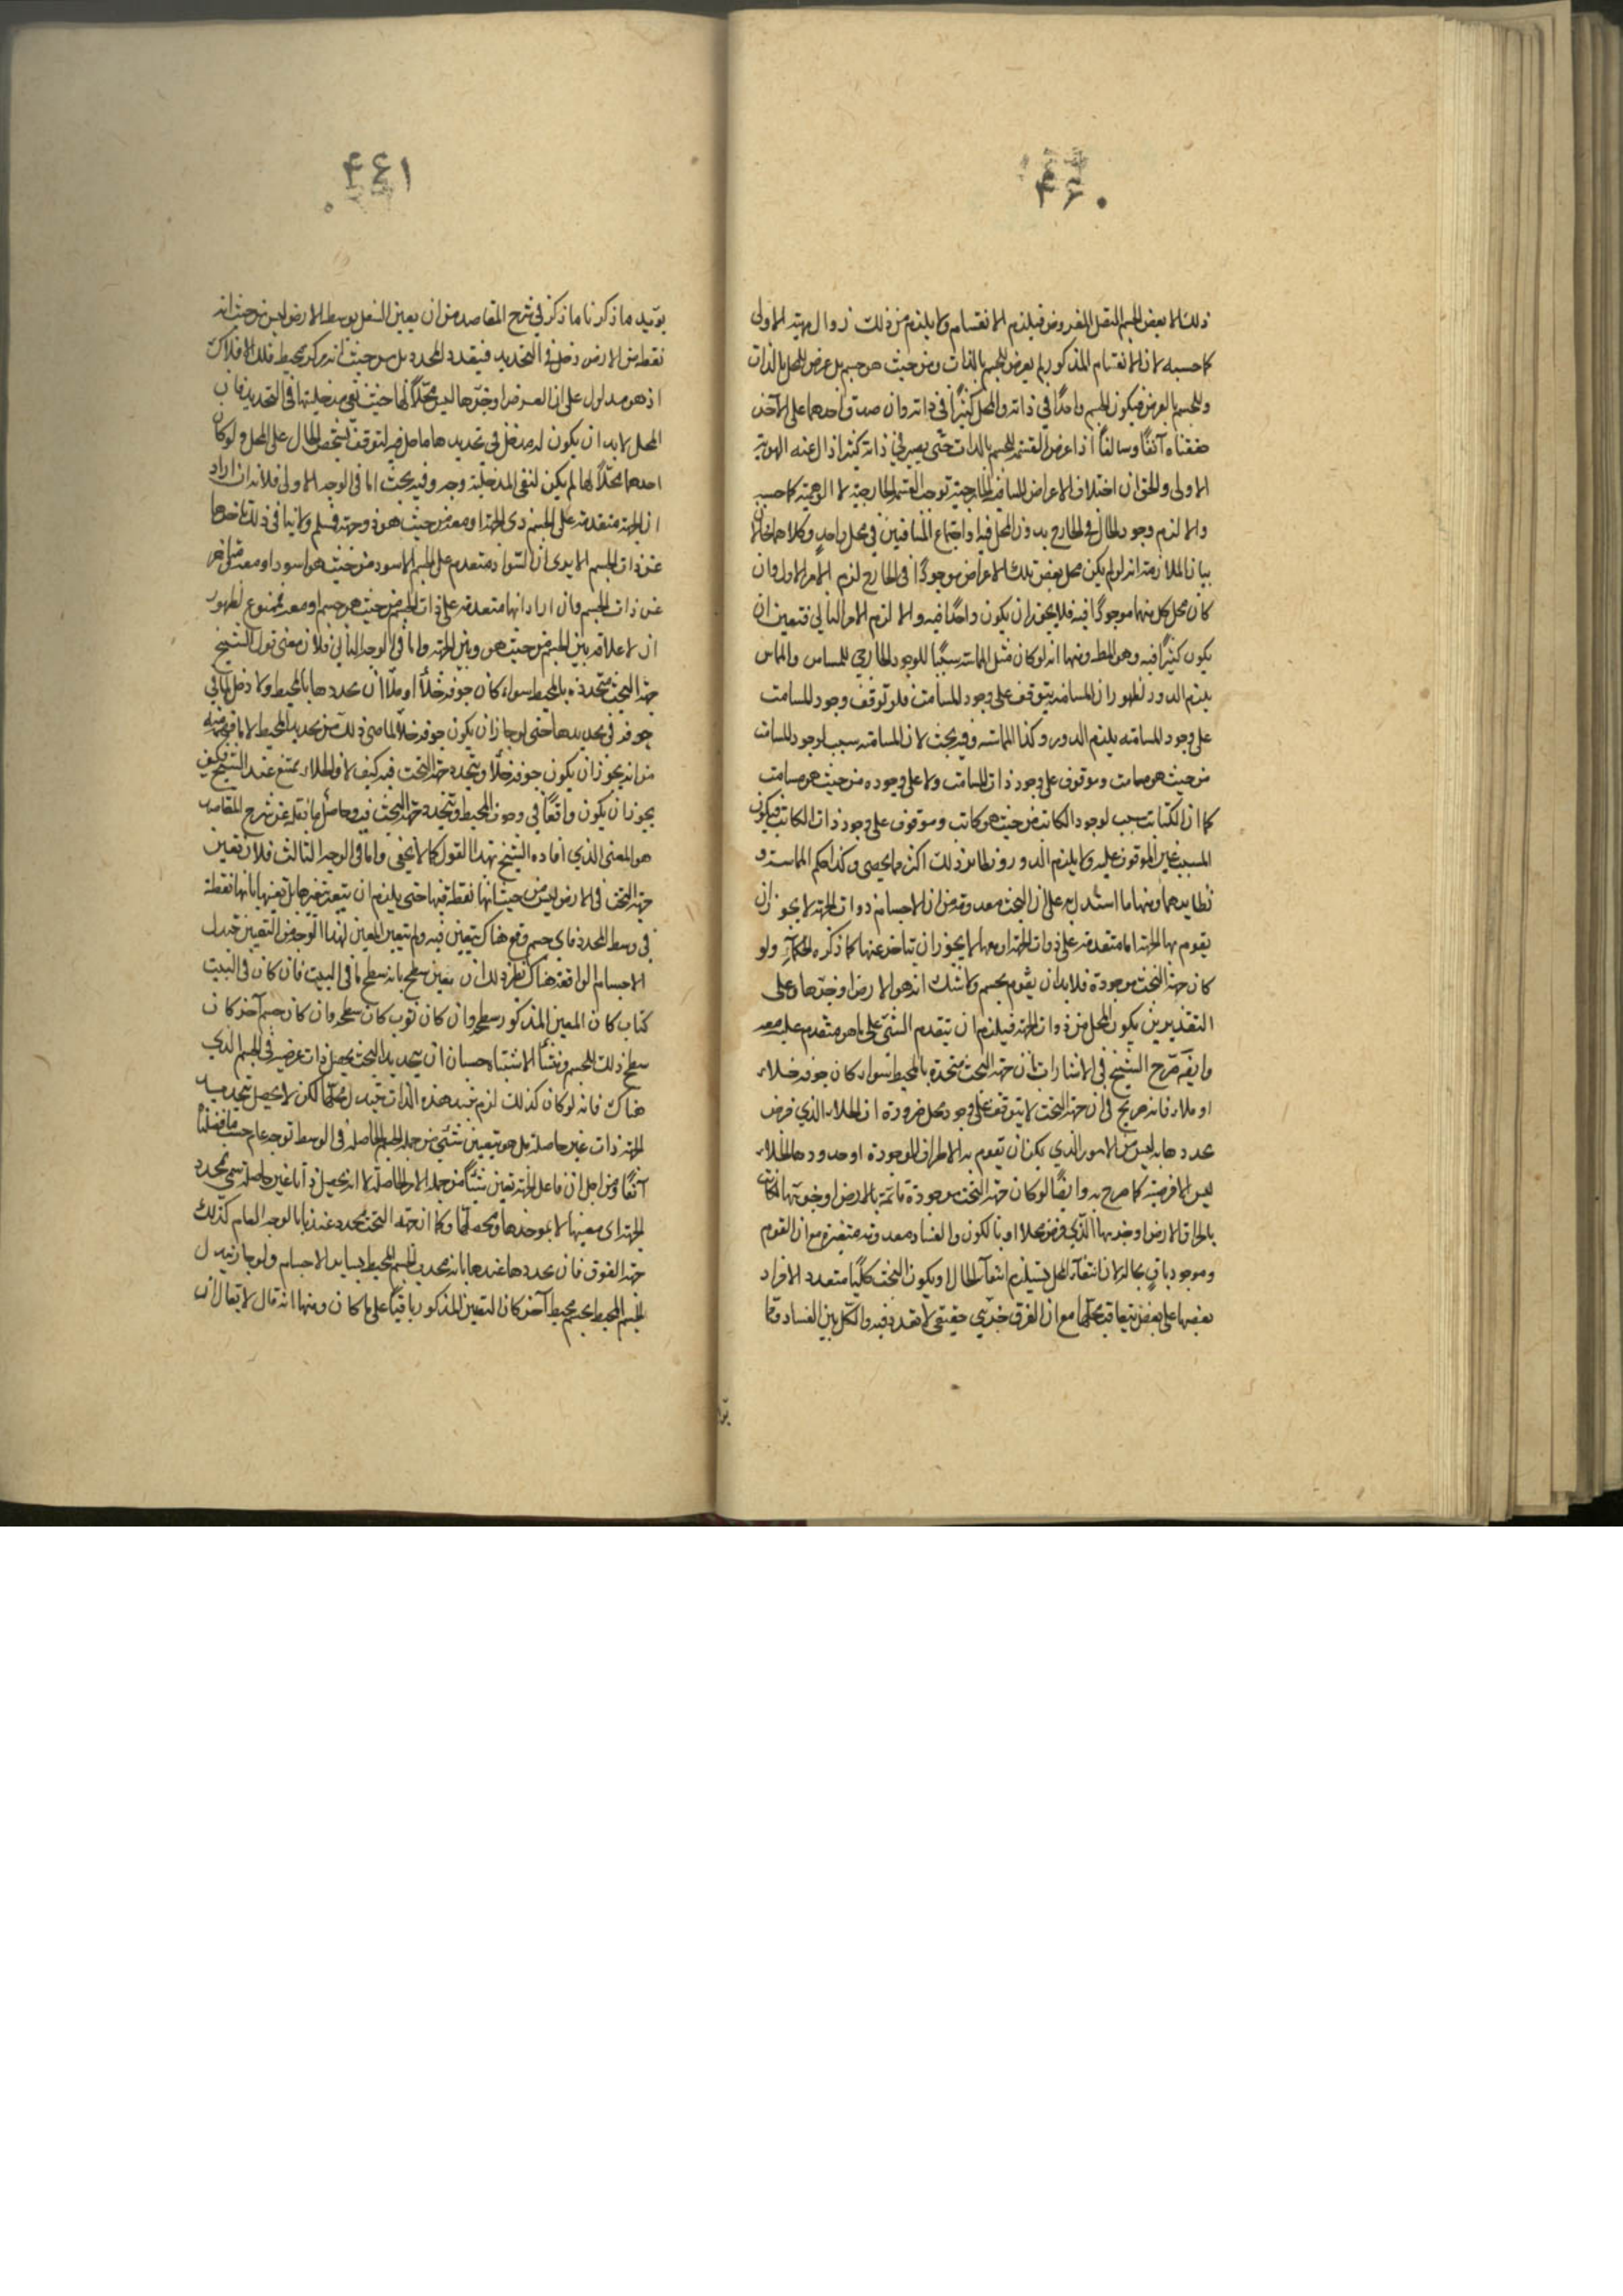 ۴۶۰
ذلك لا بعض الجسم المتصل المفروض فيلزم الانقسام ولا يلزم من ذلك زوال هويته الاولى
كما حسبه لان الانقسام المذكور لم يعرض للجسم بالذات ومن حيث هو جسم بل عرض للمحل بالذات
وللجسم بالعرض فيكون الجسم واحدًا في ذاته والمحل كثيرًا في ذاته وان صدق احدهما على الآخر
حققناه آنفًا وسالفًا اذا عرض القسمة للجسم بالذات حتى يصير في ذاته كثيرا زال عنه الهوية
الاولى والحق ان اختلاف الاعراض الخارجية توجب القسمة الخارجية لا الوهمية كما حسبه
والا لزم وجود الحال في الخارج بدون المحل فيه او اجتماع المتنافيين في محل واحد وكلاهما محالان
بيان الملازمة انه لو لم يكن محل بعض تلك الاعراض موجودًا في الخارج لزم الامر الاول وان
كان محل كل منهما موجودًا فيه فلا يجوز ان يكون واحدًا فيه والا لزم الامر الثاني فتعين ان
يكون كثيرًا فيه وهو المط ومنها انه لو كان مثل المماسة سببًا للوجود الخارجي للمماس والمماس
يلزم الدور لظهور ان المسامتة يتوقف على وجود المسامت فلو توقف وجود المسامت
على وجود المسامته يلزم الدور وكذا المماسة وفيه بحث لان المسامتة سبب لوجود المسامت
من حيث هو مسامت وموقوف على وجود ذات المسامت ولا على وجوده من حيث هو مسامت
كما ان الكتابة سبب لوجود الكاتب من حيث هو كاتب وموقوف على وجود ذات الكاتب فيكون
المسبب غير الموقوف عليه ولا يلزم الدور ونظائر ذلك اكثر مما يحصى وكذا حكم المماسة و
نظايرهما ومنها ما استدل به على ان التحت معدومة من ان الاجسام ذوات الجهة لا يجوز ان
يقوم بها الجهة اما متقدمة على ذوات الجهة او معها لا يجوز ان يتاخر عنها كما ذكره الحكماء ولو
كان جهة التحت موجودة فلا بد ان يقوم بجسم ولا شك انه هو الارض او جزءها وعلى
التقديرين يكون المحل من ذوات الجهة فيلزم ان يتقدم الشئ على ما هو متقدم عليه او معه
وايضًا صرح الشيخ في الاشارات ان جهة التحت متحددة بالمحيط سواء كان جوفه خلاء
او ملاء فانه صريح في ان جهة التحت لا يتوقف على وجود محل ضرورة ان الخلاء الذي فرض
عدد هابه ليس من الامور الذي يمكن ان يقوم به الاطراف الموجودة او حدودها الخلاء
ليس الا فرضية كما صرح به وايضًا لو كان جهة التحت موجودة قائمة بالارض او جزءها
بالحاق الارض او جزءها الذي فرض محلا او بالكون والفساد معدومة متغيرة مع ان القوم
وموجود باق بحاله لان انتفاء المحل يستلزم انتفاء الحال او يكون التحت كليًا متعدد الافراد
بعضها على بعض يتعاقب محلها مع ان الفرق جزئي حقيقي لا تعدد فيه والكل بين الفساد وقما
۴۶۱
يؤيد ما ذكرنا ما ذكر في شرح المقاصد من ان يعين السفل بوسط الارض ليس من حيث انه
نقطة من الارض دخل في التحديد فيتعدد المحدد بل من حيث انه مركز محيط فلك الافلاك
اذ هو مدلول على ان العرض او جزءها ليس محلًا لها حيث نفى مدخليتها في التحديد فان
المحل لا بد ان يكون له مدخل في تحديدها ما حل فيه لتوقف تشخص الحال على المحل ولو كان
احدهما محلًا لها لم يكن لنفى المدخلية وجه وفيه بحث اما في الوجه الاولى فلانه ان اراد
ان الجهة متقدمة على الجسم ذى الجهة او معه من حيث هو ذو جهة فسلم ولا ينافى ذلك تاخرها
عن ذات الجسم الا يرى ان السواد متقدم على الجسم الاسود من حيث هو اسود او معه متاخر
عن ذات الجسم وان اراد انها متقدمة على ذات الجسم من حيث هو جسم او معه فممنوع لظهور
ان لا علاقة بين الجسم من حيث هو وبين الجهة واما في الوجه الثاني فلان معنى قول الشيخ
جهة التحت متحددة بالمحيط سواء كان جوفه خلأ او ملأ ان تحددها بالمحيط ولا دخل لما في
جوفه في تحديدها حتى لو جاز ان يكون جوفه خلأ لما ضر ذلك من تحديد المحيط لا ما فهمه
من انه يجوز ان يكون جوفه خلأ ويتحدد جهة التحت فيه كيف لا والخلاء ممتنع عند الشيخ فكيف
يجوز ان يكون واقعًا في جوف المحيط ويتحدد جهة التحت فيه وحاصل ما نقله عن شرح المقاصد
هو المعنى الذي افاده الشيخ بهذا القول كما لا يخفى واما في الوجه الثالث فلان تعين
جهة التحت في الارض ليس من حيث انها نقطة فيها حتى يلزم ان يتغير بتغيرها بل تعينها بانها نقطة
في وسط المحدد فاي جسم وقع هناك يتعين فيه ولم يتعين المعين لهذا الوجه من التعين تبدل
الاجسام الواقعة هناك نظير ذلك ان يعين سطح بانه سطح ما في البيت فان كان في البيت
كتاب كان المعين المذكور سطحه وان كان ثوب كان سطحه وان كان جسم آخر كان
سطح ذلك الجسم ومنشأ الاشتباه حسبان ان تحديد التحت يحصل ذات عرضية في الجسم الذي
هناك فانه لو كان كذلك لزم تبدل هذه الذات بتبدل محلها لكن لا يحصل تحديد
الجهة ذات غير حاصلة بل هو تعيين شئ من جملة الجسم الحاصلة في الوسط بوجه عام حسب ما فصلنا
آنفًا ومن اجل ان فاعل الجهة تعين شيئًا من جملة الامور الحاصلة لا انه يحصل ذاتًا غير حاصلة سمى محدد
الجهة اى معينها لا بموجدها ومحصلها وكما ان جهة التحت محدد عندنا بالوجه العام كذلك
جهة الفوق فان تحددها عندها بانه محدب الجسم المحيط بسائر الاجسام ولو جاز تبدل
الجسم المحيط بجسم محيط آخر كان التعين المذكور باقيًا على ما كان ومنها انه قال لا يقال ان